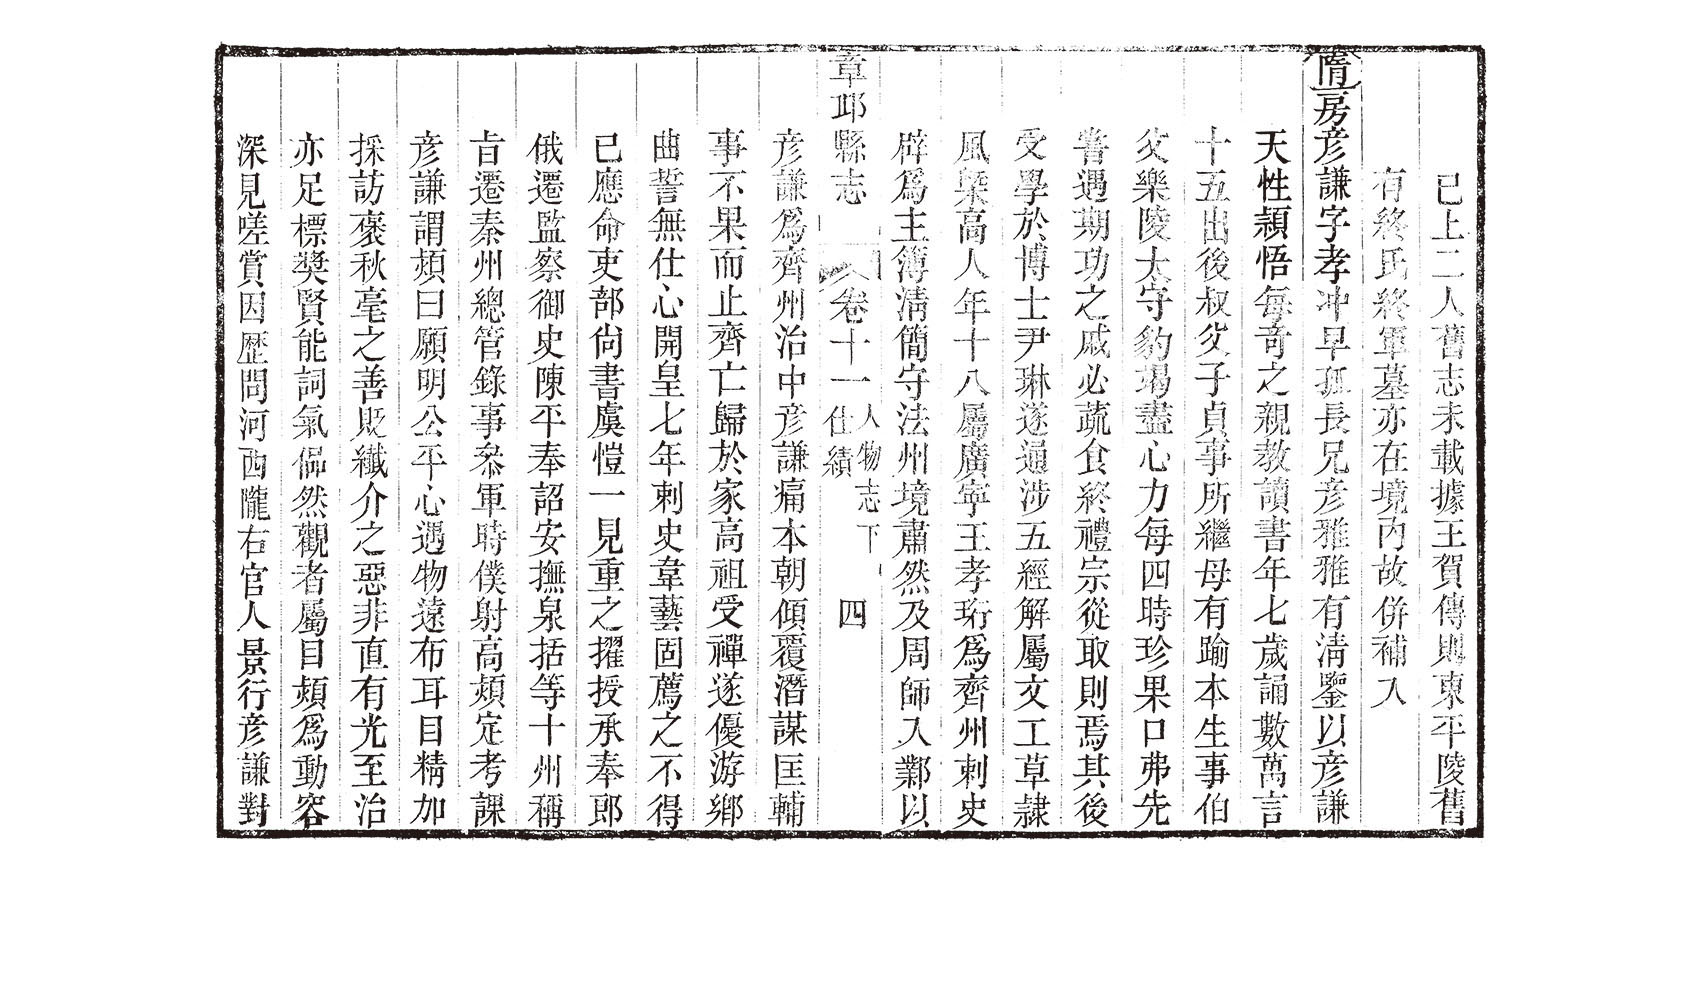 已上二人舊志未載據王賀傳則東平陵舊
有終氏終軍墓亦在境內故併補入
隋房彥謙字孝冲早孤長兄彥雅雅有清鑒以彥謙
天性頴悟每奇之親教讀書年七歲誦數萬言
十五出後叔父子貞事所繼母有踰本生事伯
父樂陵太守豹竭盡心力每四時珍果口弗先
嘗遇期功之戚必蔬食終禮宗從取則焉其後
受學於博士尹琳遂通涉五經解屬文工草隸
風槩高人年十八屬廣寧王孝珩爲齊州刺史
辟爲主簿淸簡守法州境肅然及周師入鄴以
章邱縣志 卷十一 人物志下 仕績 四
彥謙爲齊州治中彥謙痛本朝傾覆潛謀匡輔
事不果而止齊亡歸於家高祖受禪遂優游鄉
曲誓無仕心開皇七年刺史韋藝固薦之不得
已應命吏部尙書盧愷一見重之擢授承奉郎
俄遷監察御史陳平奉詔安撫泉括等十州稱
旨遷秦州總管錄事叅軍時僕射高熲定考課
彥謙謂熲曰願明公平心遇物遠布耳目精加
採訪褒秋毫之善貶纖介之惡非直有光至治
亦足標奬賢能詞氣偘然觀者屬目熲爲動容
深見嗟賞因歷問河西隴右官人景行彥謙對